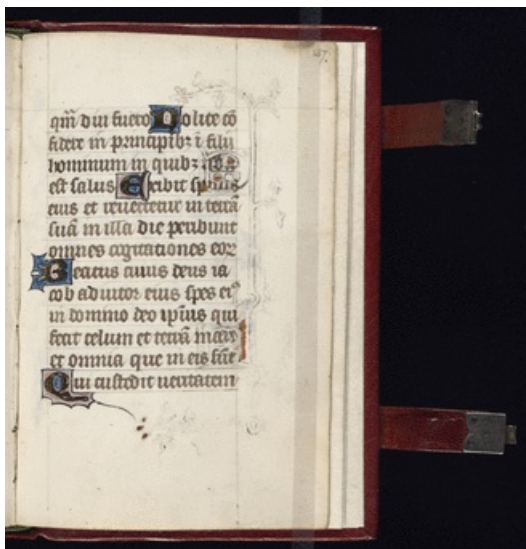 187.
qm̄ diu fuero Nolite cō
fidere in principibꝫ ĩ filii
hominum in quibꝫ nō
est salus Exibit spūs
eius et reuertetur in terrā
suā in illa die peribunt
omnes cogitationes eoꝝ
Beatus cuius deus ia
cob adiutor eius spes eiꝰ
in domino deo ipsius qui
fecit celum et terrā mare
et omnia que in eis sūt
Qui custodit ueritatem